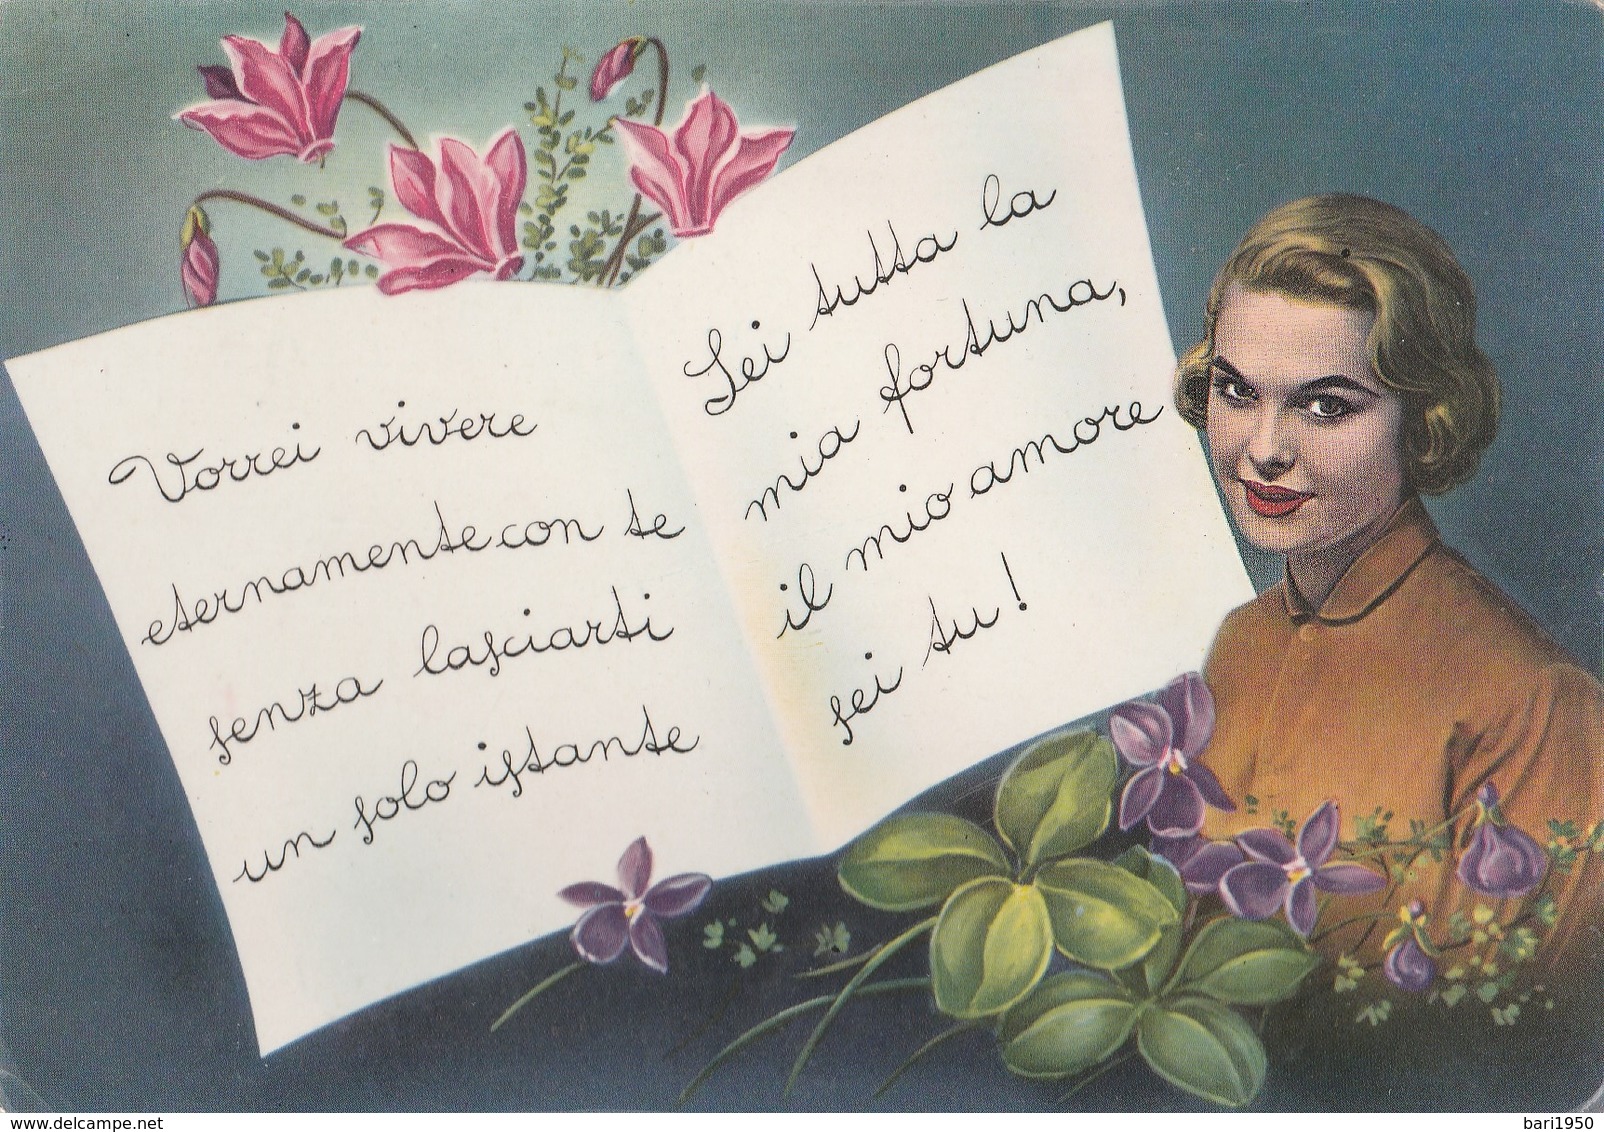 Vorrei vivere
eternamente con te
senza lasciarti
un solo istante
Sei tutta la
mia fortuna,
il mio amore
sei tu!
delcampe.net
bari1950